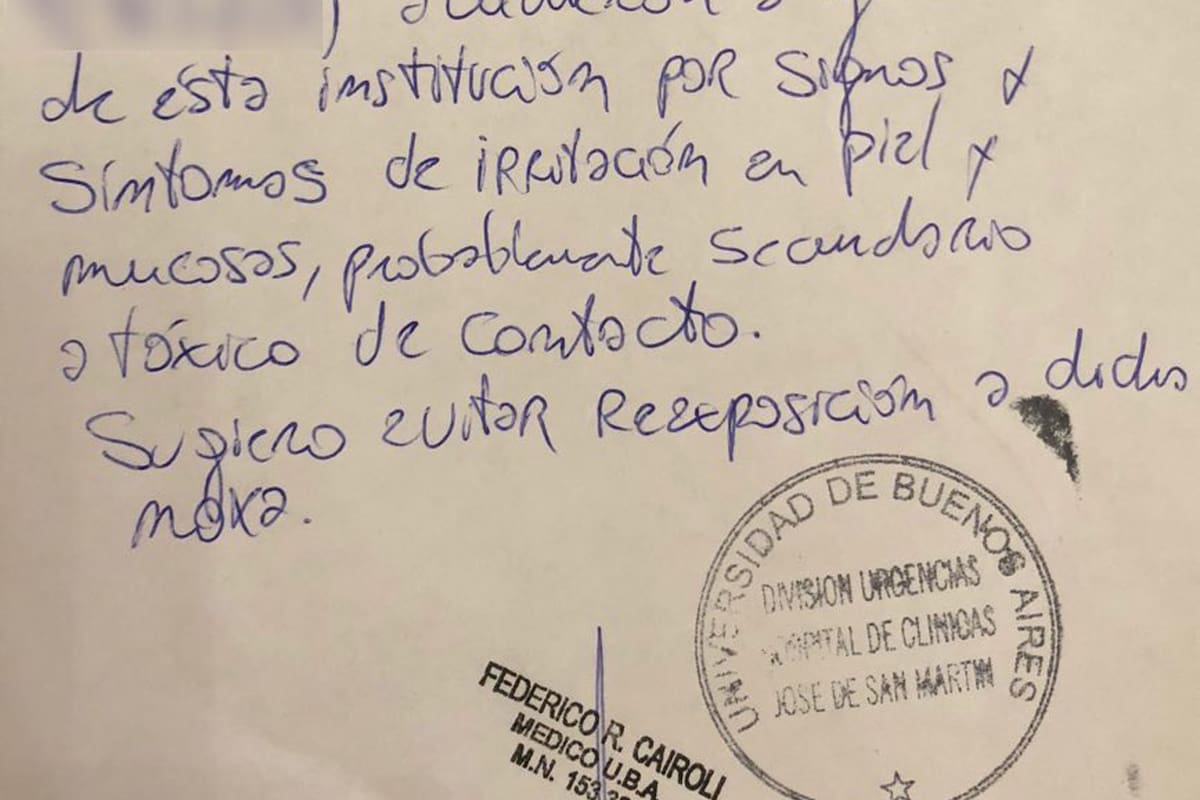 de ésta institución por signos y
síntomas de irritación en piel y
mucosas, probablemente secundario
a tóxico de contacto.
Sugiero evitar reexposición a dicha
noxa.
UNIVERSIDAD DE BUENOS AIRES
DIVISION URGENCIAS
HOSPITAL DE CLINICAS
JOSE DE SAN MARTIN
FEDERICO R. CAIROLI
MEDICO U.B.A.
M.N. 153